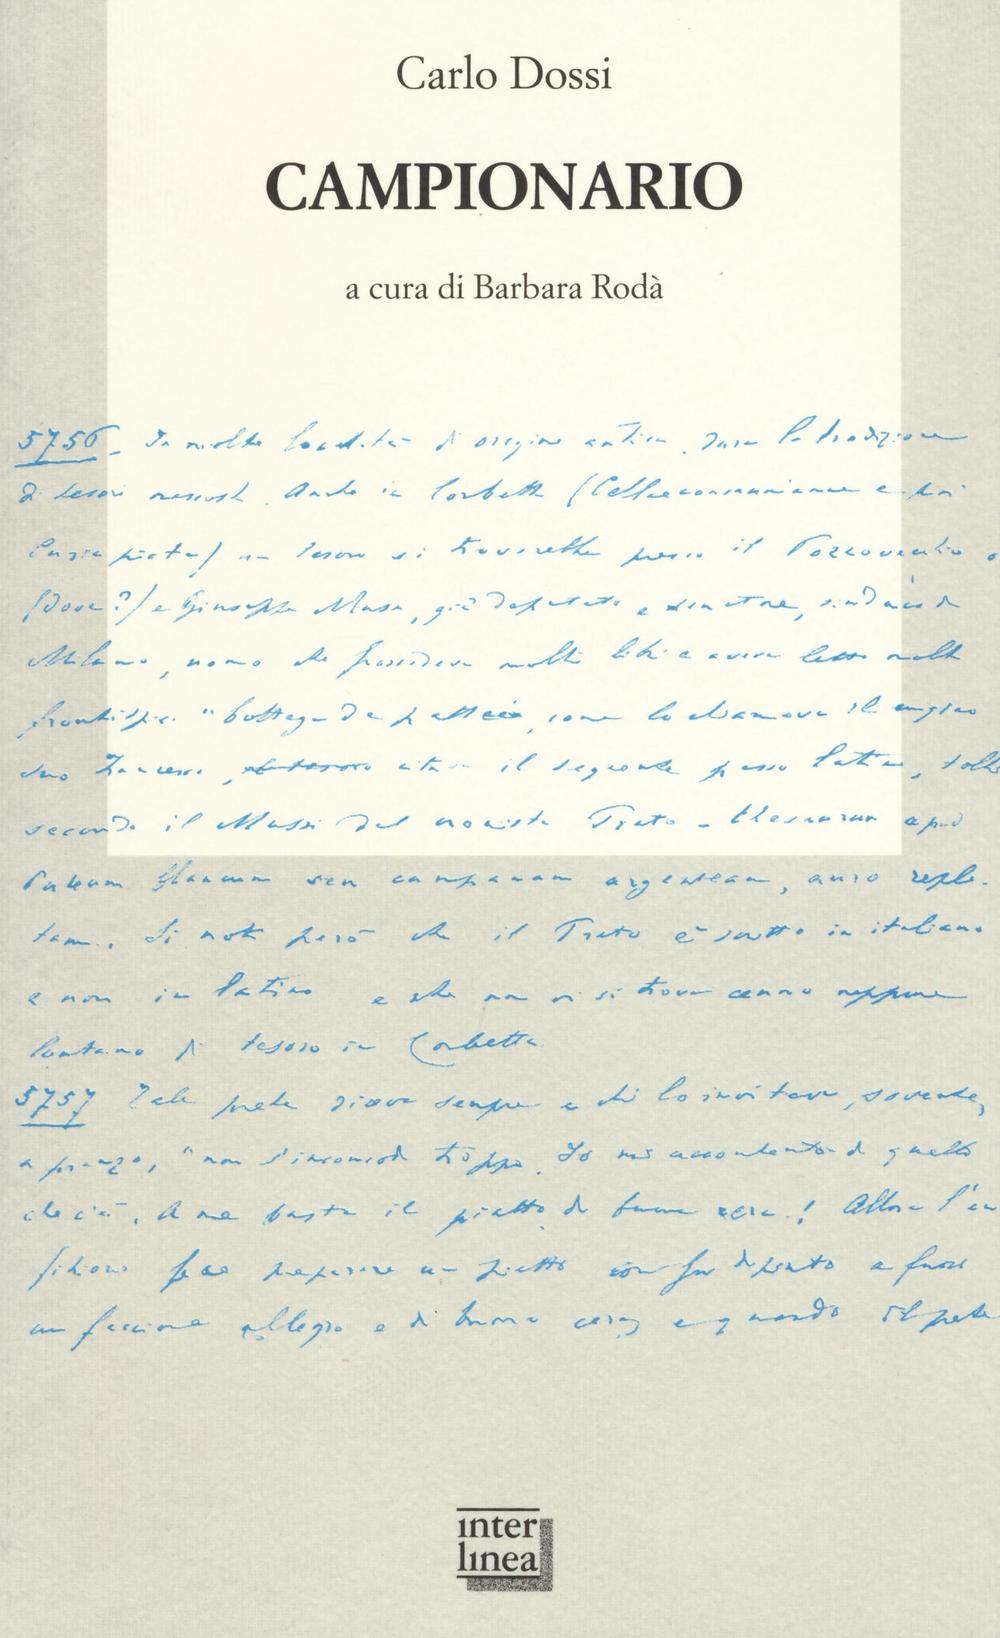 Carlo Dossi
CAMPIONARIO
a cura di Barbara Rodà
5756. In molte località di origine antica dura la tradizione
di tesori nascosti. Anche in Corbetta
un tesoro si troverebbe presso il Pozzovecchio
(dove?) e Giuseppe Mussi, già deputato e senatore, sindaco di
Milano, uomo che possedeva molti libri e aveva letto molti
frontispizi "bottega da come lo chiamava il
suo cita il seguente passo latino,
secondo il Mussi dal cronista Trato - thesaurum apud
seu campanam argenteam, auro reple-
tam. Si noti però che il Trato è scritto in italiano
e non in latino e che non vi si trova cenno neppure
lontano di tesoro in Corbetta
5757 Tale prete diceva sempre a chi lo invitava, sovente,
a pranzo, "non s'incomodi troppo. Io mi accontento di quello
che c'è. A me basta il piatto di buona cera! Allora l'an
fitrione fece preparare un piatto con su dipinto a fuoco
un faccione allegro e di buona cera, e quando il prete
inter
linea